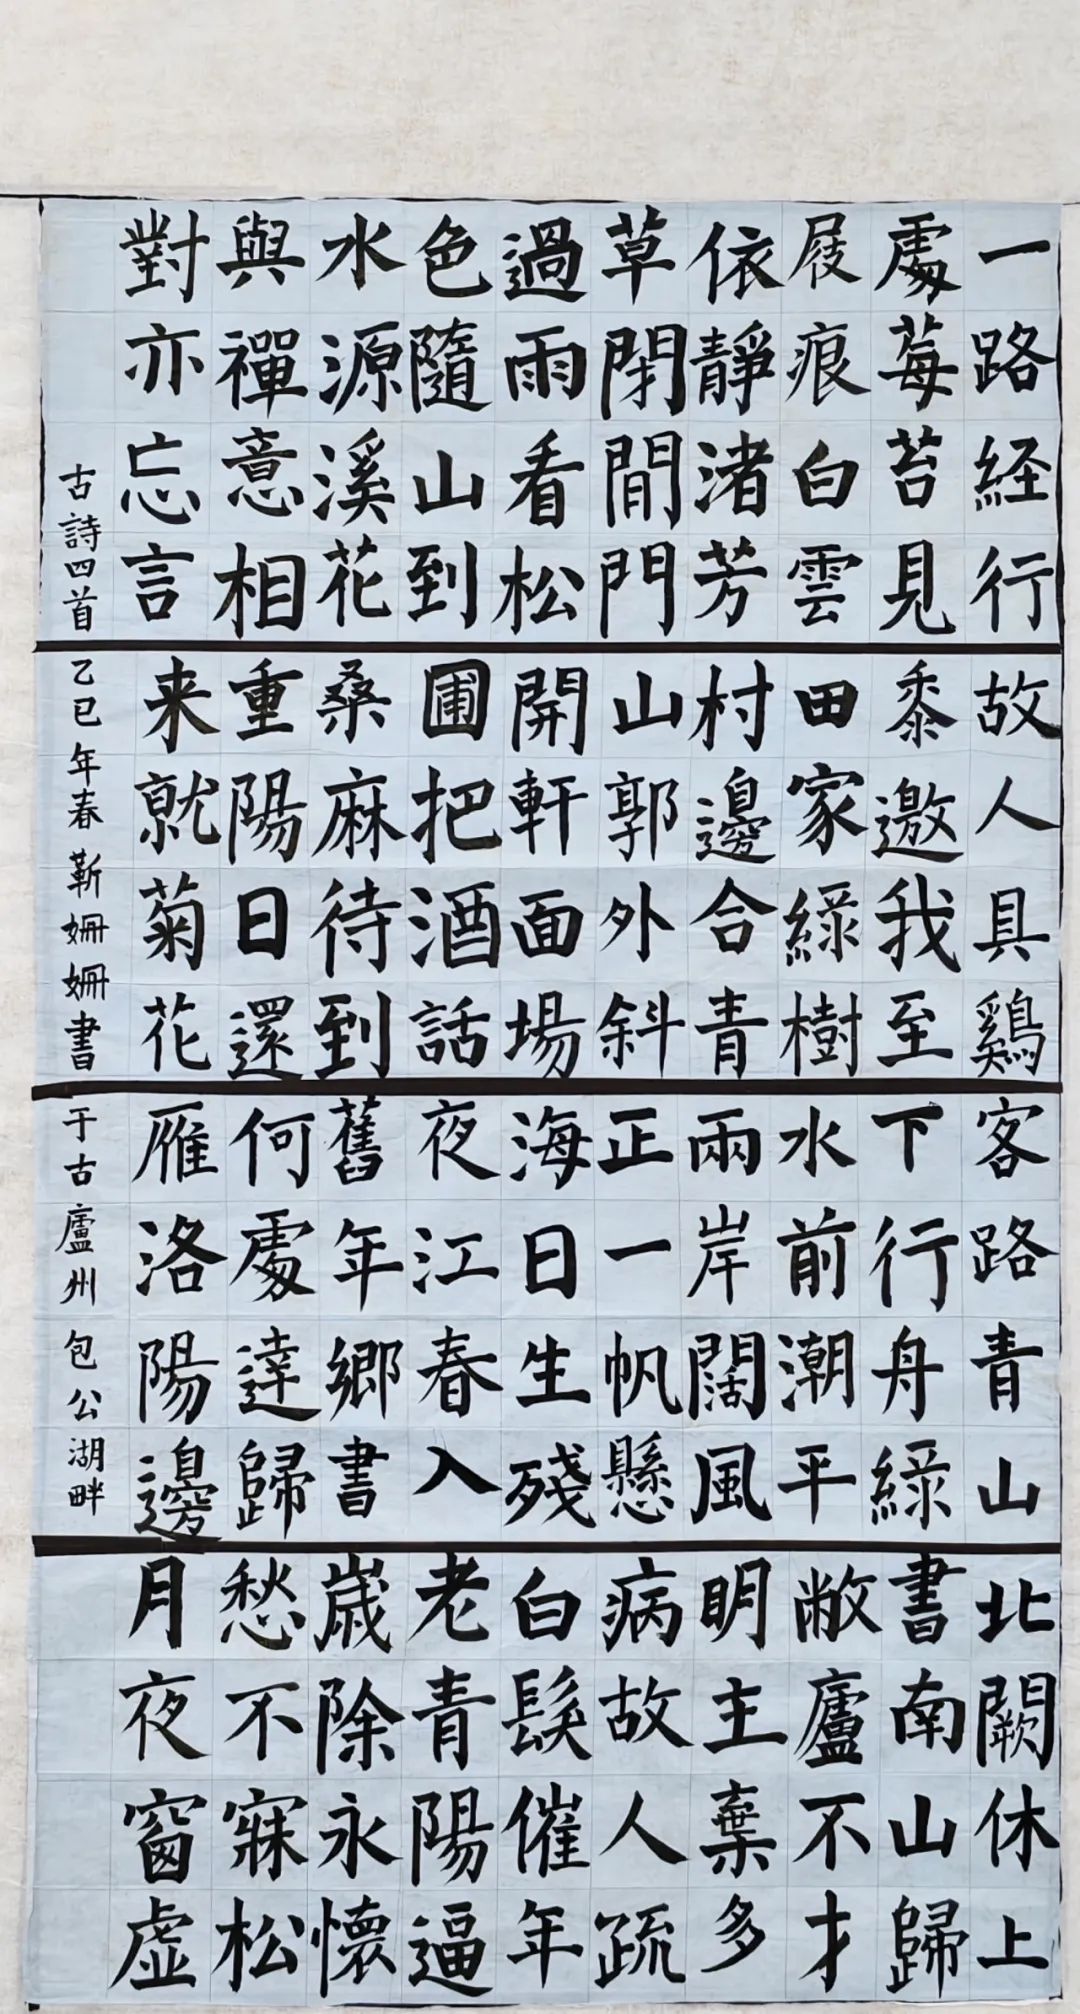 一路経行
處莓苔見
屐痕白雲
依靜渚芳
草閉閒門
過雨看松
色隨山到
水源溪花
與禪意相
對亦忘言
故人具鷄
黍邀我至
田家綠樹
村邊合青
山郭外斜
開軒面場
圃把酒話
桑麻待到
重陽日還
来就菊花
客路青山
下行舟綠
水前潮平
兩岸闊風
正一帆懸
海日生殘
夜江春入
舊年鄉書
何處達歸
雁洛陽邊
北闕休上
書南山歸
敝廬不才
明主棄多
病故人疏
白髮催年
老青陽逼
歲除永懷
愁不寐松
月夜窗虛
古詩四首 乙巳年春 靳姍姍書 于古廬州包公湖畔